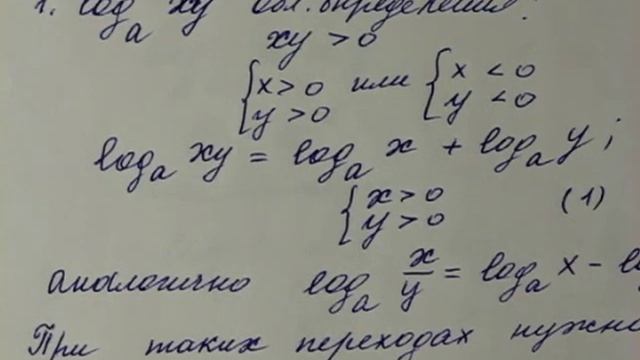 1. log_a xy обл. определения:
xy > 0
{x > 0 или {x < 0
{y > 0 {y < 0
log_a xy = log_a x + log_a y;
{x > 0 (1)
{y > 0
аналогично log_a x/y = log_a x -
При таких переходах нужно